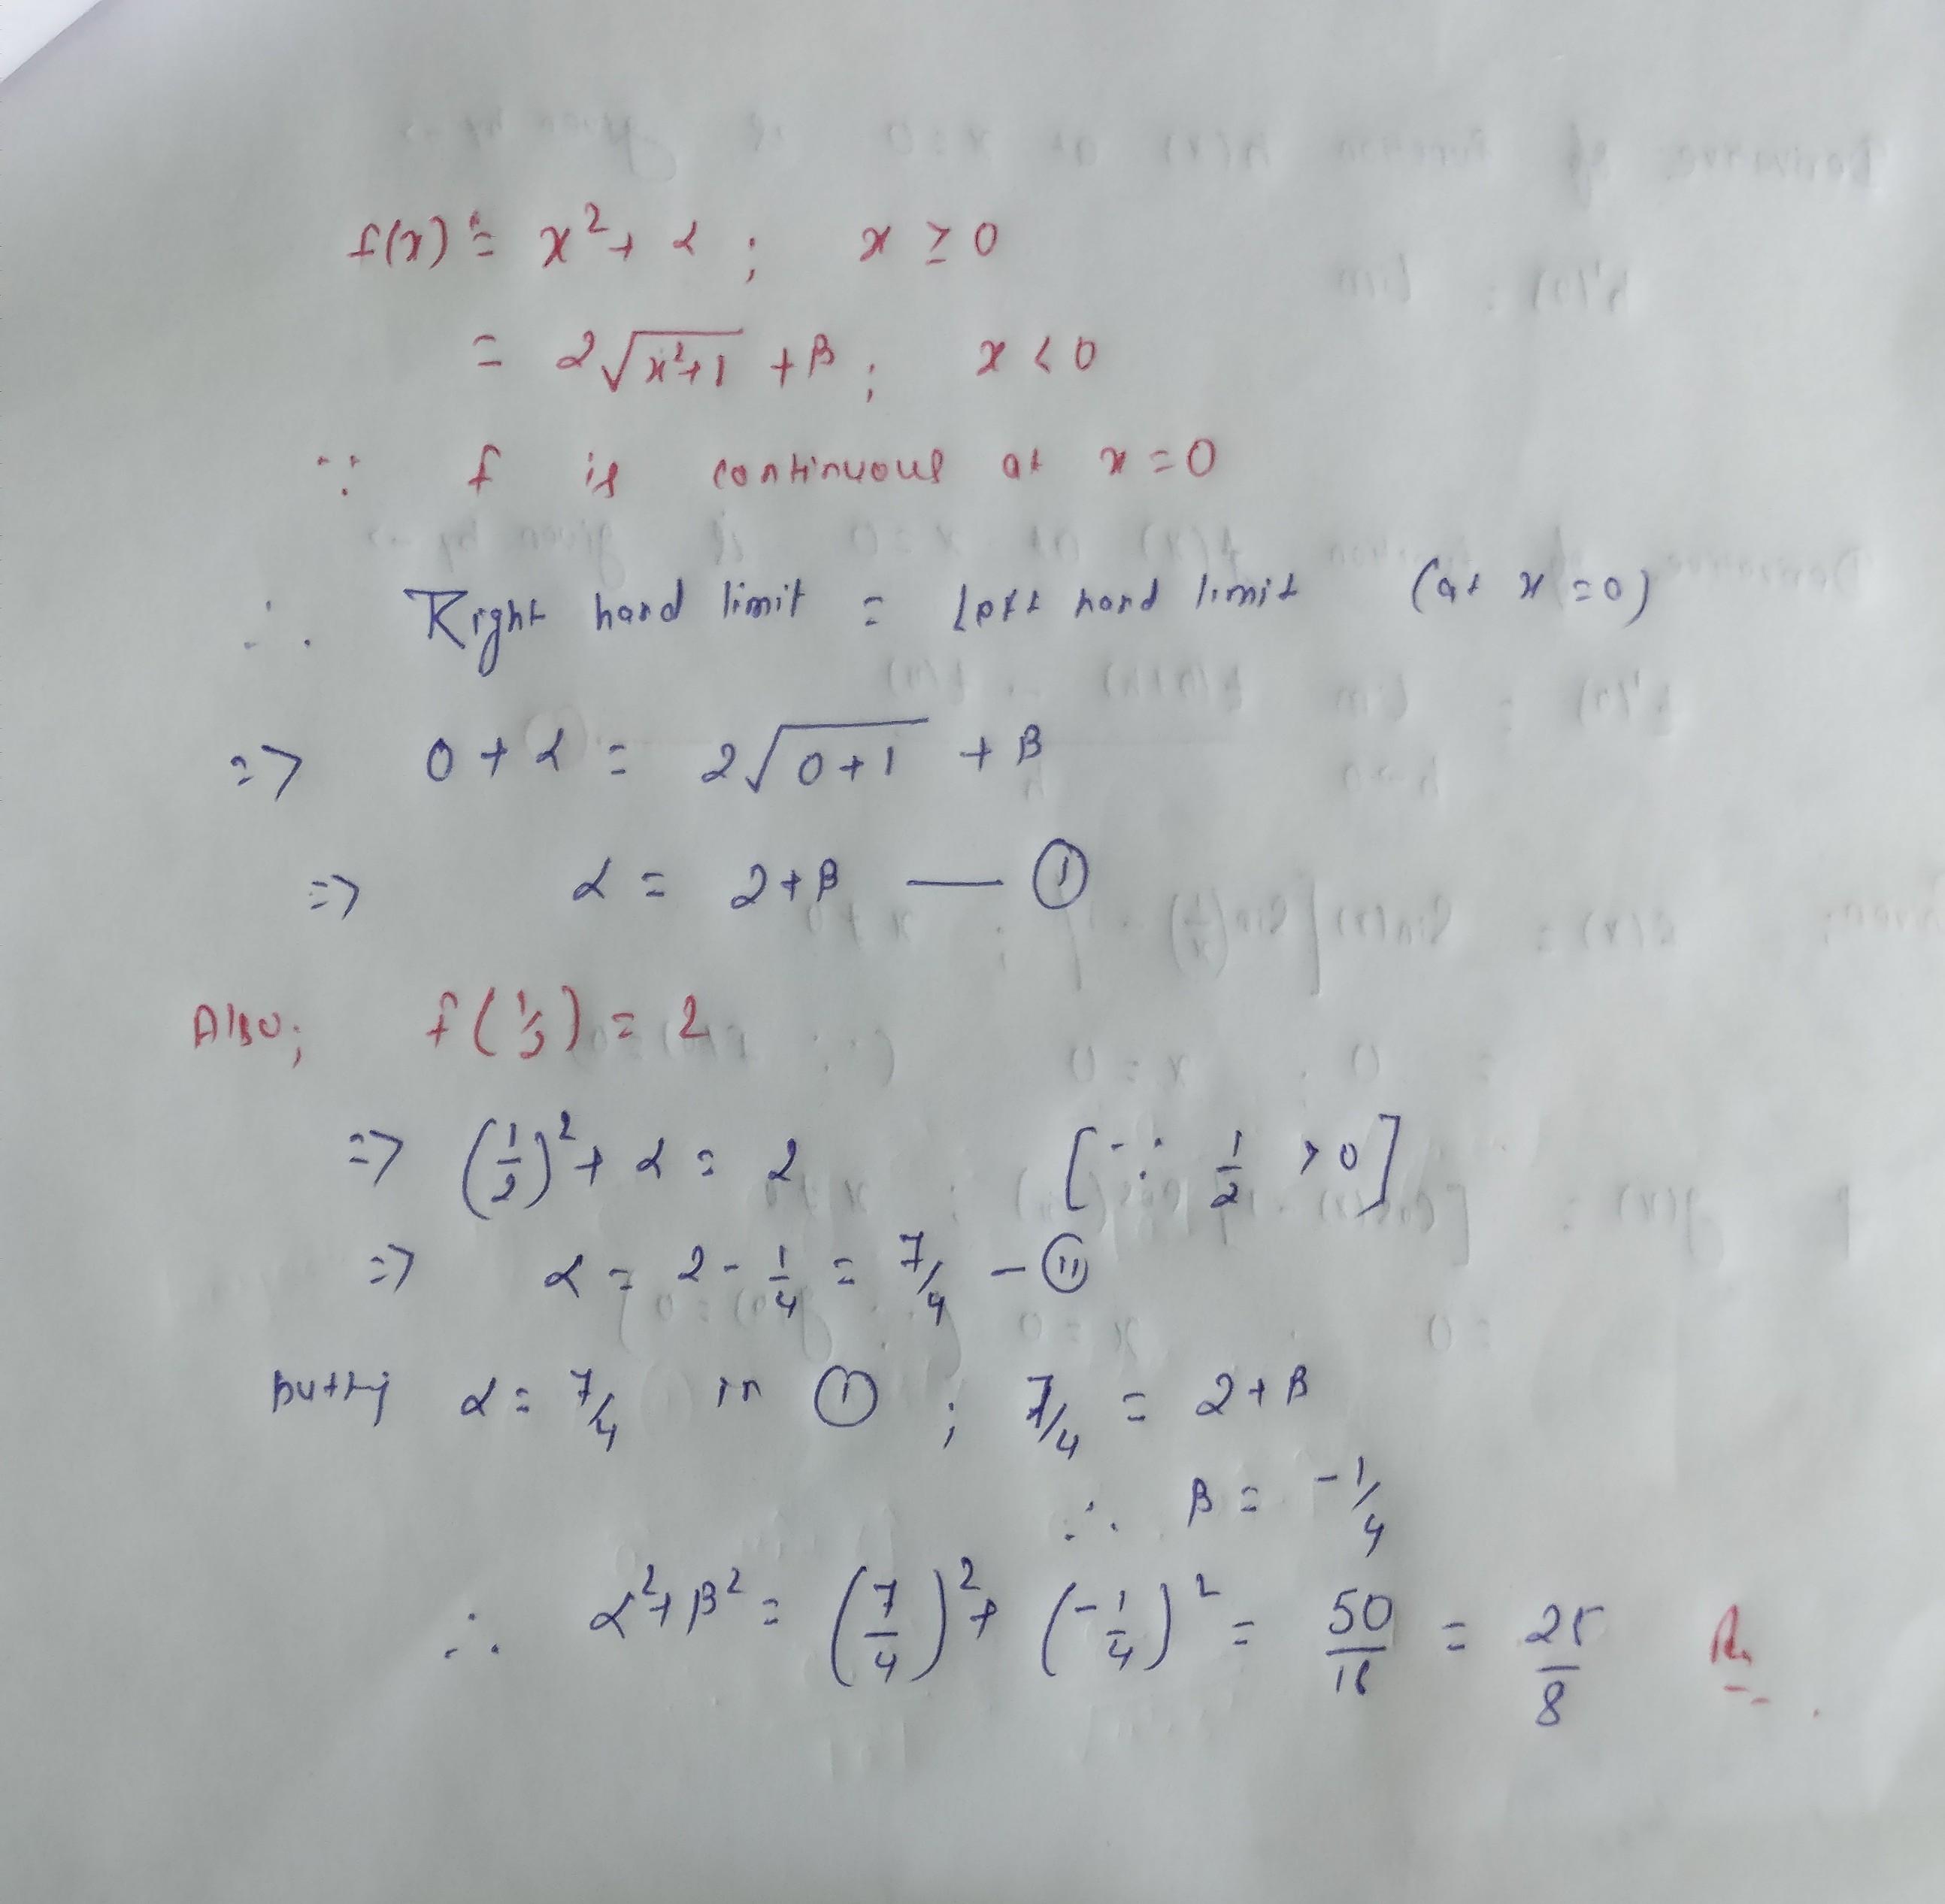 f(x) = x² + α ; x ≥ 0
= 2√(x²+1) + β ; x < 0
∵ f is continuous at x = 0
∴ Right hand limit = Left hand limit (at x = 0)
=> 0 + α = 2√(0+1) + β
=> α = 2 + β — ①
Also; f(1/2) = 2
=> (1/2)² + α = 2 [∵ 1/2 > 0]
=> α = 2 - 1/4 = 7/4 — ⑪
putting α = 7/4 in ① ; 7/4 = 2 + β
∴ β = -1/4
∴ α² + β² = (7/4)² + (-1/4)² = 50/16 = 25/8